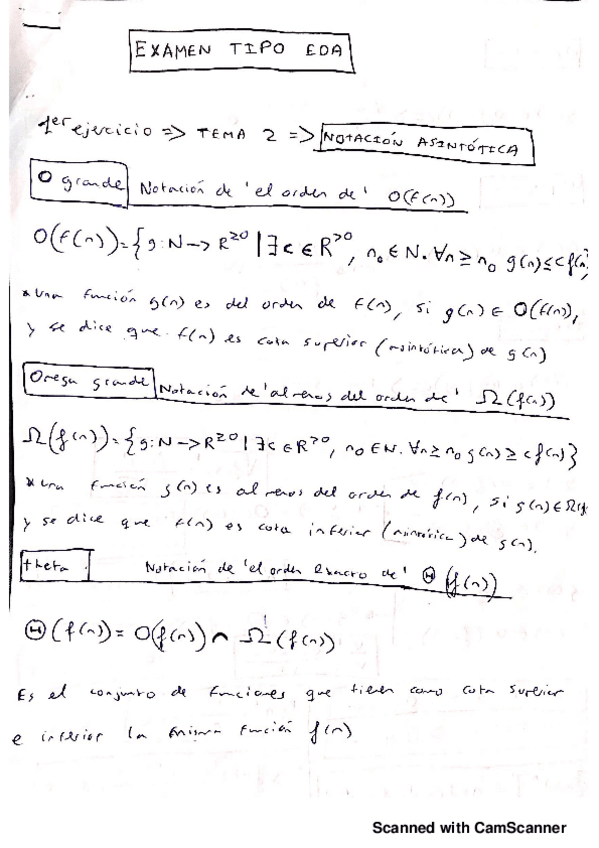 EXAMEN TIPO EDA
1er ejercicio => TEMA 2 => NOTACIÓN ASINTÓTICA
O grande Notación de 'el orden de' O(f(n))
O(f(n))={g:N->R≥0 | ∃c∈R>0, n0∈N. ∀n≥n0 g(n)≤cf(n)
*una función g(n) es del orden de f(n), si g(n)∈ O(f(n)),
y se dice que f(n) es cota superior (asintótica) de g(n)
Omega grande Notación de 'al menos del orden de' Ω(f(n))
Ω(f(n))={g:N->R≥0 | ∃c∈R>0, n0∈N. ∀n≥n0 g(n)≥cf(n)}
*una función g(n) es al menos del orden de f(n), si g(n)∈Ω(f
y se dice que f(n) es cota inferior (asintótica) de g(n).
theta Notación de 'el orden exacto de' Θ(f(n))
Θ(f(n))= O(f(n)) ∩ Ω(f(n))
Es el conjunto de funciones que tienen como cota superior
e inferior la misma función f(n)
Scanned with CamScanner